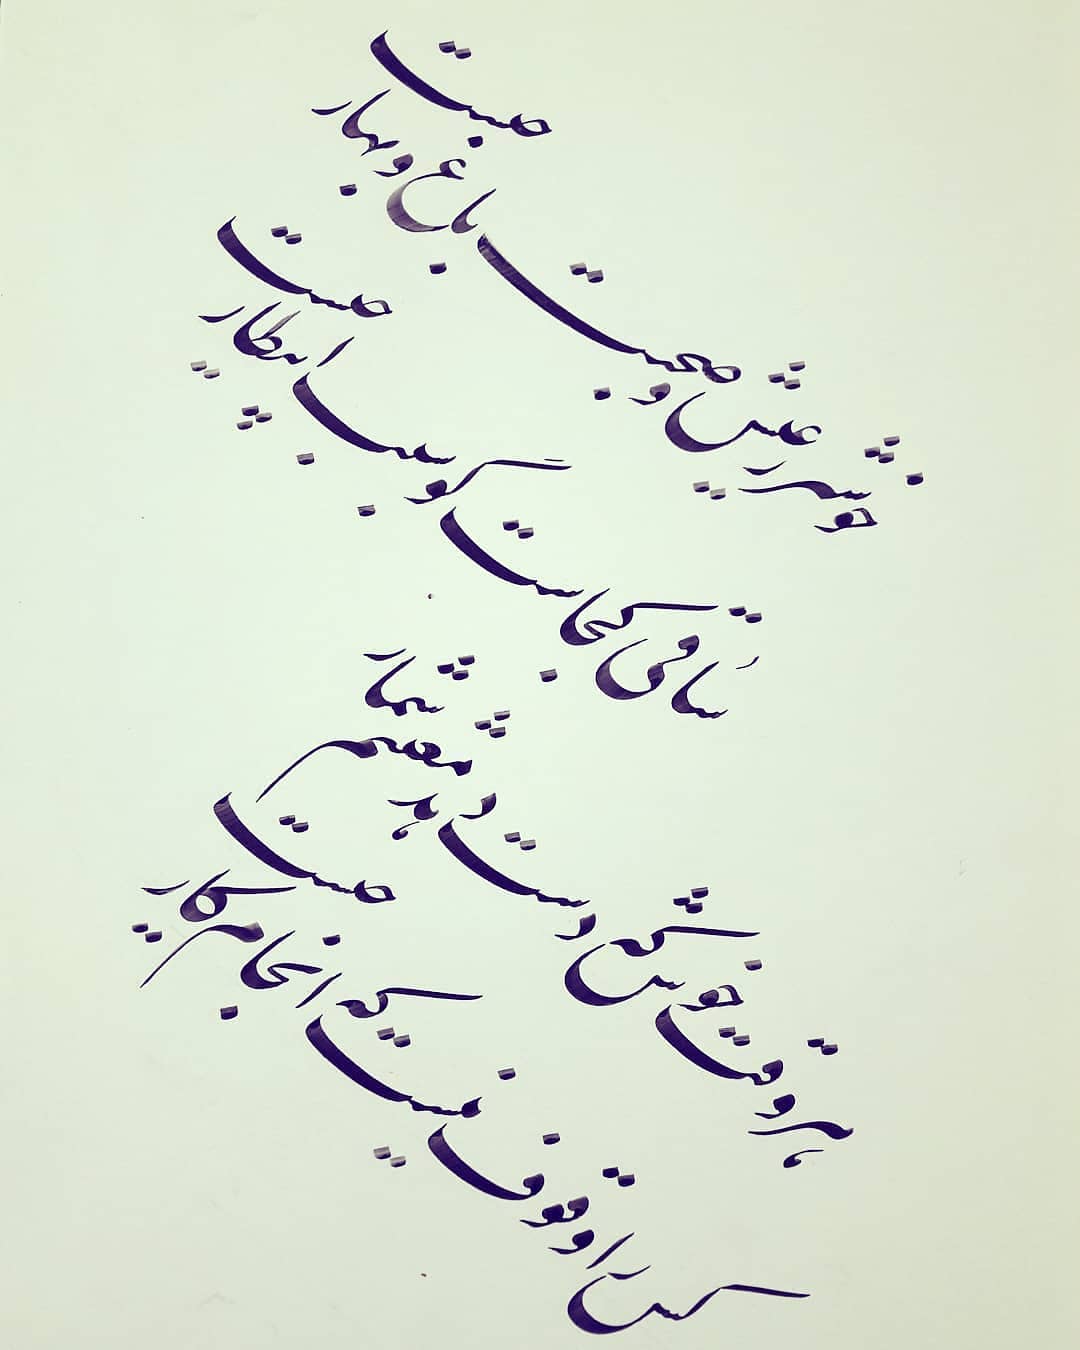 خوشتر ز عیش و صحبت باغ و بهار چیست
ساقی کجاست گو سبب انتظار چیست
هر وقت خوش که دست دهد مغتنم شمار
کس را وقوف نیست که انجام کار چیست